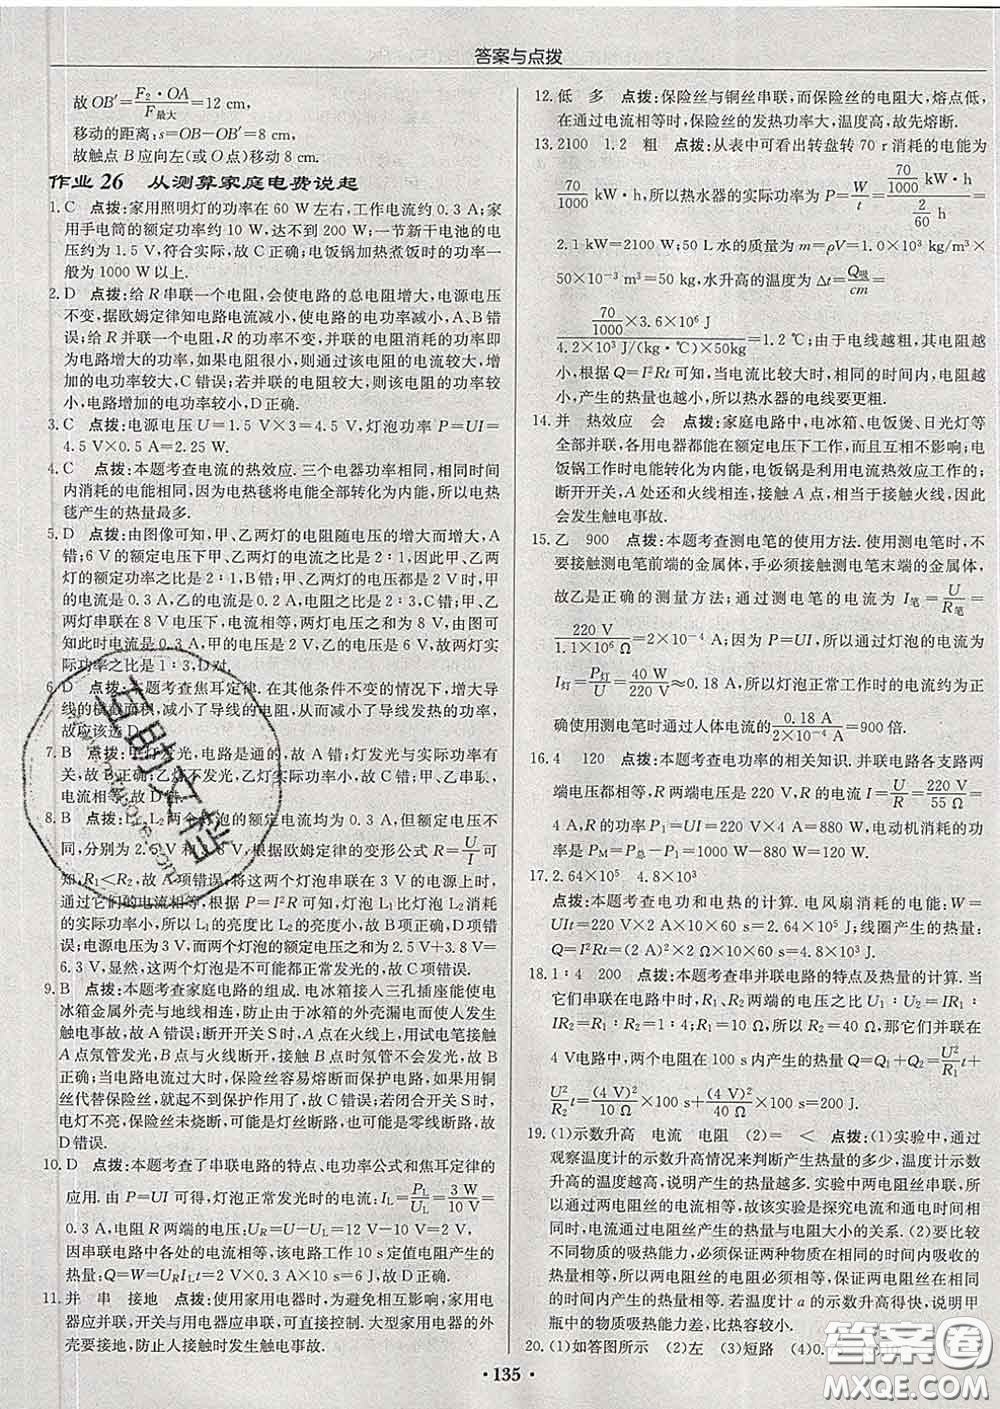 答案与点拨
故 OB′=F₂·OA/F最大=12 cm,
移动的距离:s=OB-OB′=8 cm.
故触点 B 应向左(或 O 点)移动 8 cm.
作业 26 从测算家庭电费说起
1. C 点拨:家用照明灯的功率在 60 W 左右,工作电流约 0.3 A;家
用手电筒的额定功率约 10 W,达不到 200 W;一节新干电池的电
压约为 1.5 V,符合实际,故 C 正确;电饭锅加热煮饭时的功率一
般为 1000 W 以上.
2. D 点拨:给 R 串联一个电阻,会使电路的总电阻增大,电源电压
不变,据欧姆定律知电路电流减小,使电路的功率减小,A、B 错
误;给 R 并联一个电阻,R 的功率不变,并联的电阻消耗的功率即
为电路增大的功率,如果电阻很小,则通过该电阻的电流较大,增
大的电功率较大,C 错误;若并联的电阻较大,则该电阻的功率较
小,电路增大的电功率较小,D 正确.
3. C 点拨:电源电压 U=1.5 V×3=4.5 V,灯泡功率 P=UI=
4.5 V×0.5 A=2.25 W.
4. C 点拨:本题考查电流的热效应.三个电器功率相同,相同时间
内消耗的电能相同,因为电热毯将电能全部转化为内能,所以电热
毯产生的热量最多.
5. D 点拨:由图像可知,甲、乙两灯的电阻随电压的增大而增大,A
错;6 V 的额定电压下甲、乙两灯的电流之比是 2∶1,因此甲、乙两
灯的额定功率之比是 2∶1,B 错;甲、乙两灯的电压都是 2 V 时,甲
的电流是 0.3 A,乙的电流是 0.2 A,电阻之比是 2∶3,C 错;甲、
乙两灯串联在 8 V 电压下,电流相等,两灯电压之和为 8 V,由图可
知此时电流为 0.3 A,甲灯电压为 2 V,乙灯电压为 6 V,故两灯实
际功率之比是 1∶3,D 对.
6. D 点拨:本题考查焦耳定律.在其他条件不变的情况下,增大导
线的横截面积,减小了导线的电阻,从而减小了导线发热的功率,
故应该选 D.
7. B 点拨:甲灯发光,电路是通的,故 A 错;灯发光与实际功率有
关,故 B 正确;乙灯不发光,乙灯实际功率为零,故 C 错;甲、乙串联,
电流相等,故 D 错.
8. B 点拨:L₁、L₂ 两个灯泡的额定电流均为 0.3 A,但额定电压不
同,分别为 2.5 V 和 3.8 V,根据欧姆定律的变形公式 R=U/I 可
知,R₁<R₂,故 A 项错误;将这两个灯泡串联在 3 V 的电源上时,
通过它们的电流相等,根据 P=I²R 可知,灯泡 L₁ 比灯泡 L₂ 消耗
的实际功率小,所以 L₁ 的亮度比 L₂ 的亮度小,故 B 正确,D 项错
误;电源电压为 3 V,而两个灯泡的额定电压之和为 2.5 V+3.8 V=
6.3 V,显然,这两个灯泡不可能都正常发光的,故 C 项错误.
9. B 点拨:本题考查家庭电路的组成.电冰箱接入三孔插座能使电
冰箱金属外壳与地线相连,防止由于冰箱的外壳漏电而使人发生
触电事故,故 A 错误;断开开关 S 时,A 点在火线上,用试电笔接触
A 点氖管发光,B 点与火线断开,接触 B 点时氖管不会发光,故 B
正确;当电路电流过大时,保险丝容易熔断而保护电路,如果用铜
丝代替保险丝,则起不到保护作用了,故 C 错误;若闭合开关 S 时,
电灯不亮,保险丝未烧断,可能是灯丝断路,也可能是零线断路,故
D 错误.
10. D 点拨:本题考查了串联电路的特点、电功率公式和焦耳定律的
应用.由 P=UI 可得,灯泡正常发光时的电流:I_L=P_L/U_L=3 W/10 V=
0.3 A,电阻 R 两端的电压:U_R=U-U_L=12 V-10 V=2 V,
因串联电路中各处的电流相等,该电路工作 10 s 定值电阻产生的
热量:Q=W=U_R I_L t=2 V×0.3 A×10 s=6 J,故 D 正确.
11. 并 串 接地 点拨:使用家用电器时,为避免相互影响,家用电
器应并联,开关与用电器应串联,可直接控制.大型家用电器的外
壳要接地,防止人接触时发生触电事故.
12. 低 多 点拨:保险丝与铜丝串联,而保险丝的电阻大,熔点低,
在通过电流相等时,保险丝的发热功率大,温度高,故先熔断.
13. 2100 1.2 粗 点拨:从表中可看出转盘转 70 r 消耗的电能为
70/1000 kW·h,所以热水器的实际功率为 P=W/t=(70/1000 kW·h)/(2/60 h)=
2.1 kW=2100 W;50 L 水的质量为 m=ρV=1.0×10³ kg/m³×
50×10⁻³ m³=50 kg,水升高的温度为 Δt=Q吸/cm=
(70/1000×3.6×10⁶ J)/(4.2×10³ J/(kg·℃)×50kg)=1.2 ℃;由于电线越粗,其电阻越
小,根据 Q=I²Rt 可知,当电流比较大时,相同的时间内,电阻越
小,产生的热量也越小,所以热水器的电线要更粗.
14. 并 热效应 会 点拨:家庭电路中,电冰箱、电饭煲、日光灯等
全部并联,各用电器都能在额定电压下工作,而且互相不影响;电
饭锅工作时电能转化为内能,电饭锅是利用电流热效应工作的;
断开开关,A 处还和火线相连,接触 A 点,相当于接触火线,因此
会发生触电事故.
15. 乙 900 点拨:本题考查测电笔的使用方法.使用测电笔时,不
要接触测电笔前端的金属体,手必须接触测电笔末端的金属体,
故乙是正确的测量方法;通过测电笔的电流为 I笔=U/R笔=
220 V/(1.1×10⁶ Ω)=2×10⁻⁴ A;因为 P=UI,所以通过灯泡的电流为
I灯=P灯/U=40 W/220 V≈0.18 A,所以灯泡正常工作时的电流为正
确使用测电笔时通过人体电流的0.18 A/(2×10⁻⁴ A)=900 倍.
16. 4 120 点拨:本题考查电功率的相关知识.并联电路各支路两
端电压都相等,R 两端电压是 220 V,R 的电流 I=U/R=220 V/55 Ω=
4 A,R 的功率 P₁=UI=220 V×4 A=880 W,电动机消耗的功
率是 P_M=P总-P₁=1000 W-880 W=120 W.
17. 2.64×10⁵ 4.8×10³
点拨:本题考查电功和电热的计算.电风扇消耗的电能:W=
UIt=220 V×2 A×10×60 s=2.64×10⁵ J;线圈产生的热量:
Q=I²Rt=(2 A)²×2 Ω×10×60 s=4.8×10³ J.
18. 1∶4 200 点拨:本题考查串并联电路的特点及热量的计算.当
它们串联在电路中时,R₁、R₂ 两端的电压之比 U₁∶U₂=IR₁∶
IR₂=R₁∶R₂=1∶4;因为 R₁=10 Ω,所以 R₂=40 Ω,那它们并联在
4 V电路中,两个电阻在 100 s 内产生的热量 Q=Q₁+Q₂=U²/R₁ t+
U²/R₂ t=(4 V)²/10 Ω×100 s+(4 V)²/40 Ω×100 s=200 J.
19. (1)示数升高 电流 电阻 (2)= < 点拨:(1)实验中,通过
观察温度计的示数升高情况来判断产生热量的多少,温度计示数
升高的温度越高,说明产生的热量越多.实验中两电阻丝串联在
电路中,故通过两电阻丝的电流和通电时间相等,而两个电阻丝
的电阻大小不相等,故该实验是探究电流和通电时间相
同时,电流通过电阻丝产生的热量与电阻大小的关系.(2)要比较
不同物质的吸热能力,必须保证两种物质在相同的时间内吸收的
热量相同,所以两电阻丝的电阻应相等,保证两电阻丝在相同
的时间内产生的热量相等.若温度计 a 的示数升高较快,说明甲
瓶中的物质吸热能力差,比热容较小.
20. (1)如答图所示 (2)左 (3)短路 (4)0.
·135·
互助文库
答案圈
MXQE.COM